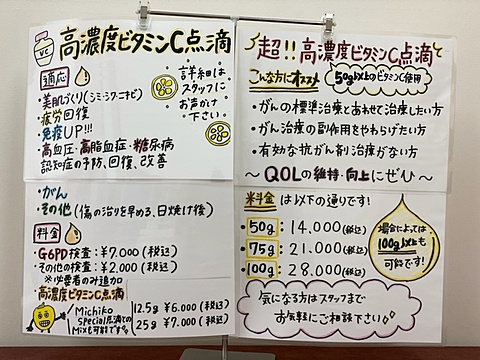 VC
高濃度ビタミンC点滴
適応
詳細は
スタッフに
お声かけ
下さい
・美肌づくり(シミ・シワ・ニキビ)
・疲労回復
・免疫UP!!!
・高血圧・高脂血症・糖尿病
認知症の予防、回復、改善
・がん
・その他(傷の治りを早める、日焼け後)
料金
・G6PD検査:¥7.000(税込)
・その他の検査:¥2.000(税込)
※必要者のみ追加
高濃度ビタミンC点滴
Michiko
Special点滴との
Mixも可能です
12.5g ¥6.000(税込)
25g ¥7.000(税込)
超!!高濃度ビタミンC点滴
こんな方にオススメ
50g以上のビタミンC使用
・がんの標準治療とあわせて治療したい方
・がん治療の副作用をやわらげたい方
・有効な抗がん剤治療がない方
〜QOLの維持・向上にぜひ〜
料金は以下の通りです!
・50g:14.000(税込)
・75g:21.000(税込)
・100g:28.000(税込)
場合によっては
100g以上も
可能です!
気になる方はスタッフまで
お気軽にご相談下さい